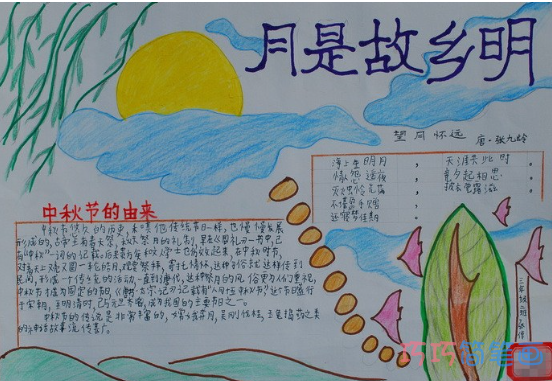 月是故乡明
望月怀远 唐·张九龄
海上生明月， 天涯共此时。
遥夜， 竟夕起相思。
灭烛怜光满， 披衣觉露滋。
不堪盈手赠，
还寝梦佳期。
中秋节的由来
中秋节悠久的历史，和其他传统节日一样，也慢慢发展
形成的，古帝王有春天祭日，秋天祭月的礼制，
"中秋"一词的记载。后来贵族和文人学士也仿效起来，在中秋时节，
对着天上又亮又圆一轮皓月，观赏祭拜，寄托情怀，这种习俗就这样传到
民间，形成一个传统的活动，一直到唐代，这种祭月的风俗更为人们重视，
中秋节才成为固定的节日，《唐书·太宗记》记载有"八月十五中秋节"，这个节日盛行
于宋朝，至明清时，已与元旦齐名，成为我国的主要节日之一。
中秋节的传说是非常丰富的，嫦娥奔月，吴刚伐桂，玉兔捣药之类
的神话故事流传甚广。
三年级二班
巧巧简笔画